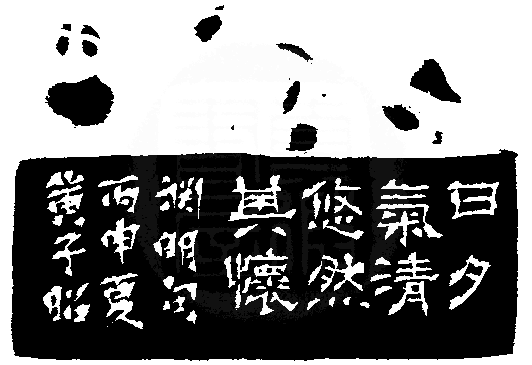 日夕
氣清
悠然
其懷
淵明句
丙申夏
黃子昭